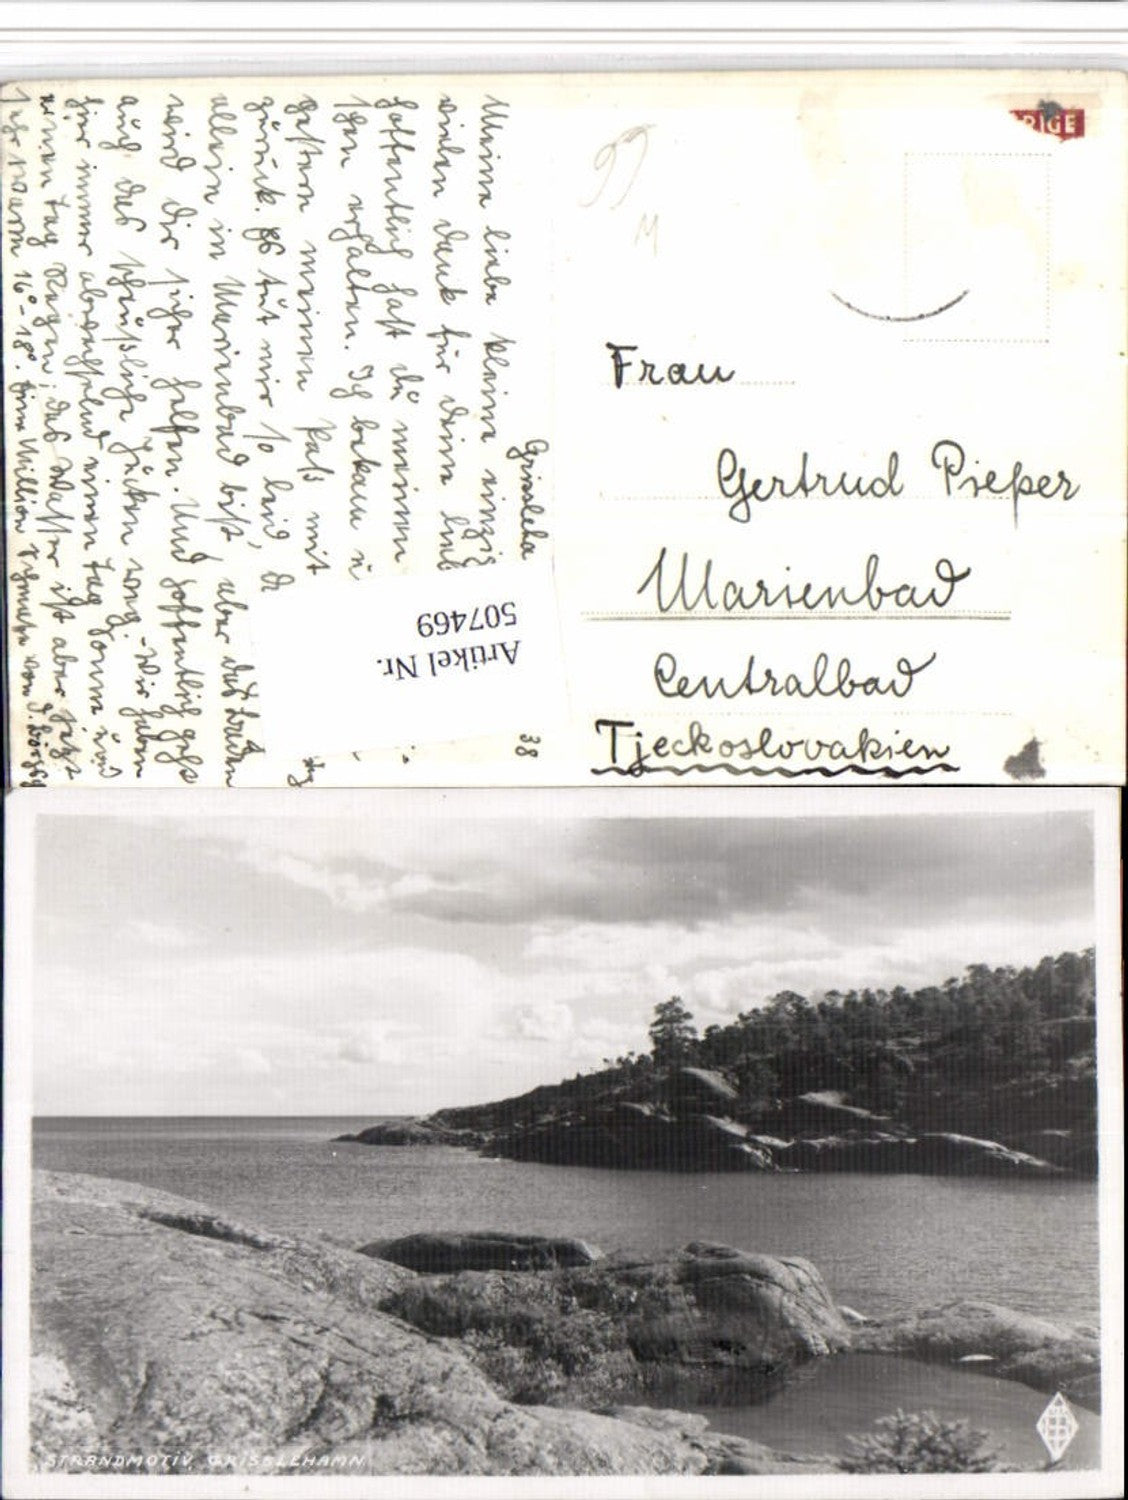 Grissleha
38
Meine liebe kleine einzig
vielen Dank für deine lieb
hoffentlich hast du meinen
schon erhalten. Ich bekam
gestern meinen Paß mit
zurück. Es tut mir so leid
allein in Marienbad bist, aber das Baden
wird dir sicher helfen. Und hoffentlich geht
auch das scheußliche Jucken weg. - Wir haben
für immer abwechselnd einen Tag Sonne und
einen Tag Regen; das Wasser ist aber jetzt
sehr warm 16°-18°. Eine Million
Artikel Nr.
507469
RIGE
Frau
Gertrud Pieper
Marienbad
Centralbad
Tjeckoslovakien
STRANDMOTIV. GRISSLEHAMN.